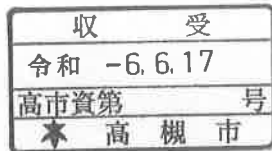 収 受
令和 -6.6.17
高市資第 号
高槻市